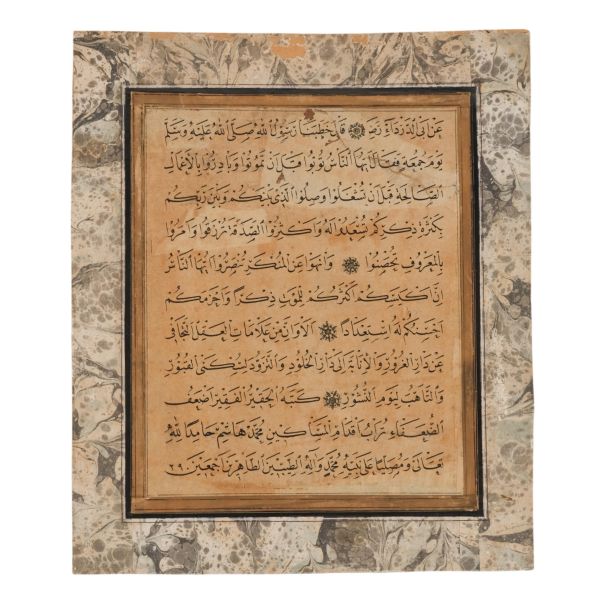 عَنْ أَبِي الدَّرْدَاءِ رَضَ قَالَ خَطَبَنَا رَسُولُ اللهِ صَلَّى اللهُ عَلَيْهِ وَسَلَّمَ
يَوْمَ جُمُعَةٍ فَقَالَ أَيُّهَا النَّاسُ تُوبُوا قَبْلَ أَنْ تَمُوتُوا وَبَادِرُوا بِالْأَعْمَالِ
الصَّالِحَةِ قَبْلَ أَنْ تُشْغَلُوا وَصِلُوا الَّذِي بَيْنَكُمْ وَبَيْنَ رَبِّكُمْ
بِكَثْرَةِ ذِكْرِكُمْ تُسْعَدُوا لَهُ وَأَكْثِرُوا الصَّدَقَةَ تُرْزَقُوا وَأْمُرُوا
بِالْمَعْرُوفِ تُحْصَنُوا وَانْهَوْا عَنِ الْمُنْكَرِ تُنْصَرُوا أَيُّهَا النَّاسُ
إِنَّ أَكْيَسَكُمْ أَكْثَرُكُمْ لِلْمَوْتِ ذِكْرًا وَأَحْزَمَكُمْ
أَحْسَنُكُمْ لَهُ اسْتِعْدَادًا أَلَا وَإِنَّ مِنْ عَلَامَاتِ الْعَقْلِ التَّجَافِيَ
عَنْ دَارِ الْغُرُورِ وَالْإِنَابَةَ إِلَى دَارِ الْخُلُودِ وَالتَّزَوُّدَ لِسُكْنَى الْقُبُورِ
وَالتَّأَهُّبَ لِيَوْمِ النُّشُورِ كَتَبَهُ الْحَقِيرُ الْفَقِيرُ أَضْعَفُ
الضُّعَفَاءِ تُرَابُ أَقْدَامِ الْمَسَاكِينِ مُحَمَّد هَاشِم حَامِدًا لِلّٰهِ
تَعَالَى وَمُصَلِّيًا عَلَى نَبِيِّهِ مُحَمَّدٍ وَآلِهِ الطَّيِّبِينَ الطَّاهِرِينَ أَجْمَعِينَ